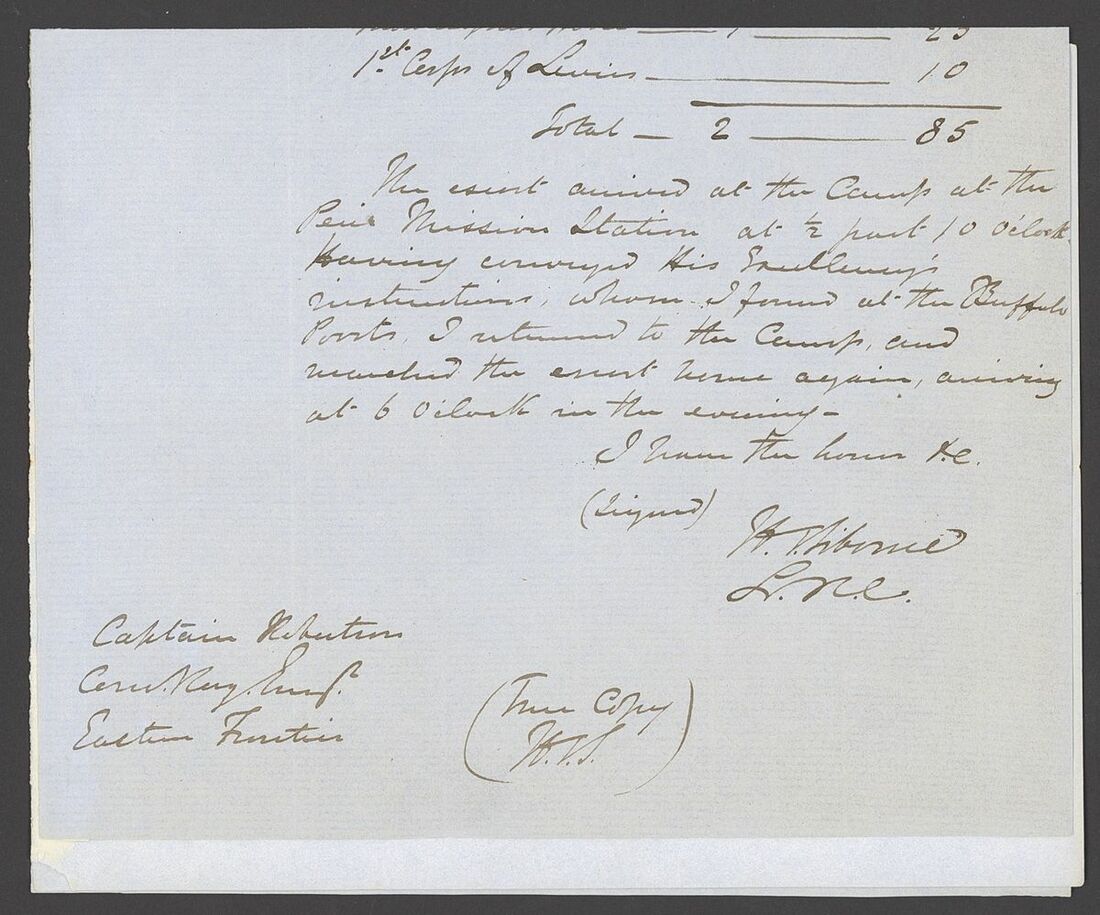 25
1st Corps of Levies 10
Total 2 85
The escort arrived at the Camp at the
Peric Mission Station at ½ past 10 O'clock
Having conveyed His Excellency's
instructions, whom I found at the Buffalo
Poorts, I returned to the Camp, and
marched the escort home again, arriving
at 6 O'clock in the evening –
I have the honor &c.
(Signed)
H. Siborne
Lt. R.E.
Captain Robertson
Comd. Roy. Eng.
Eastern Frontier
(True Copy
H.S.)